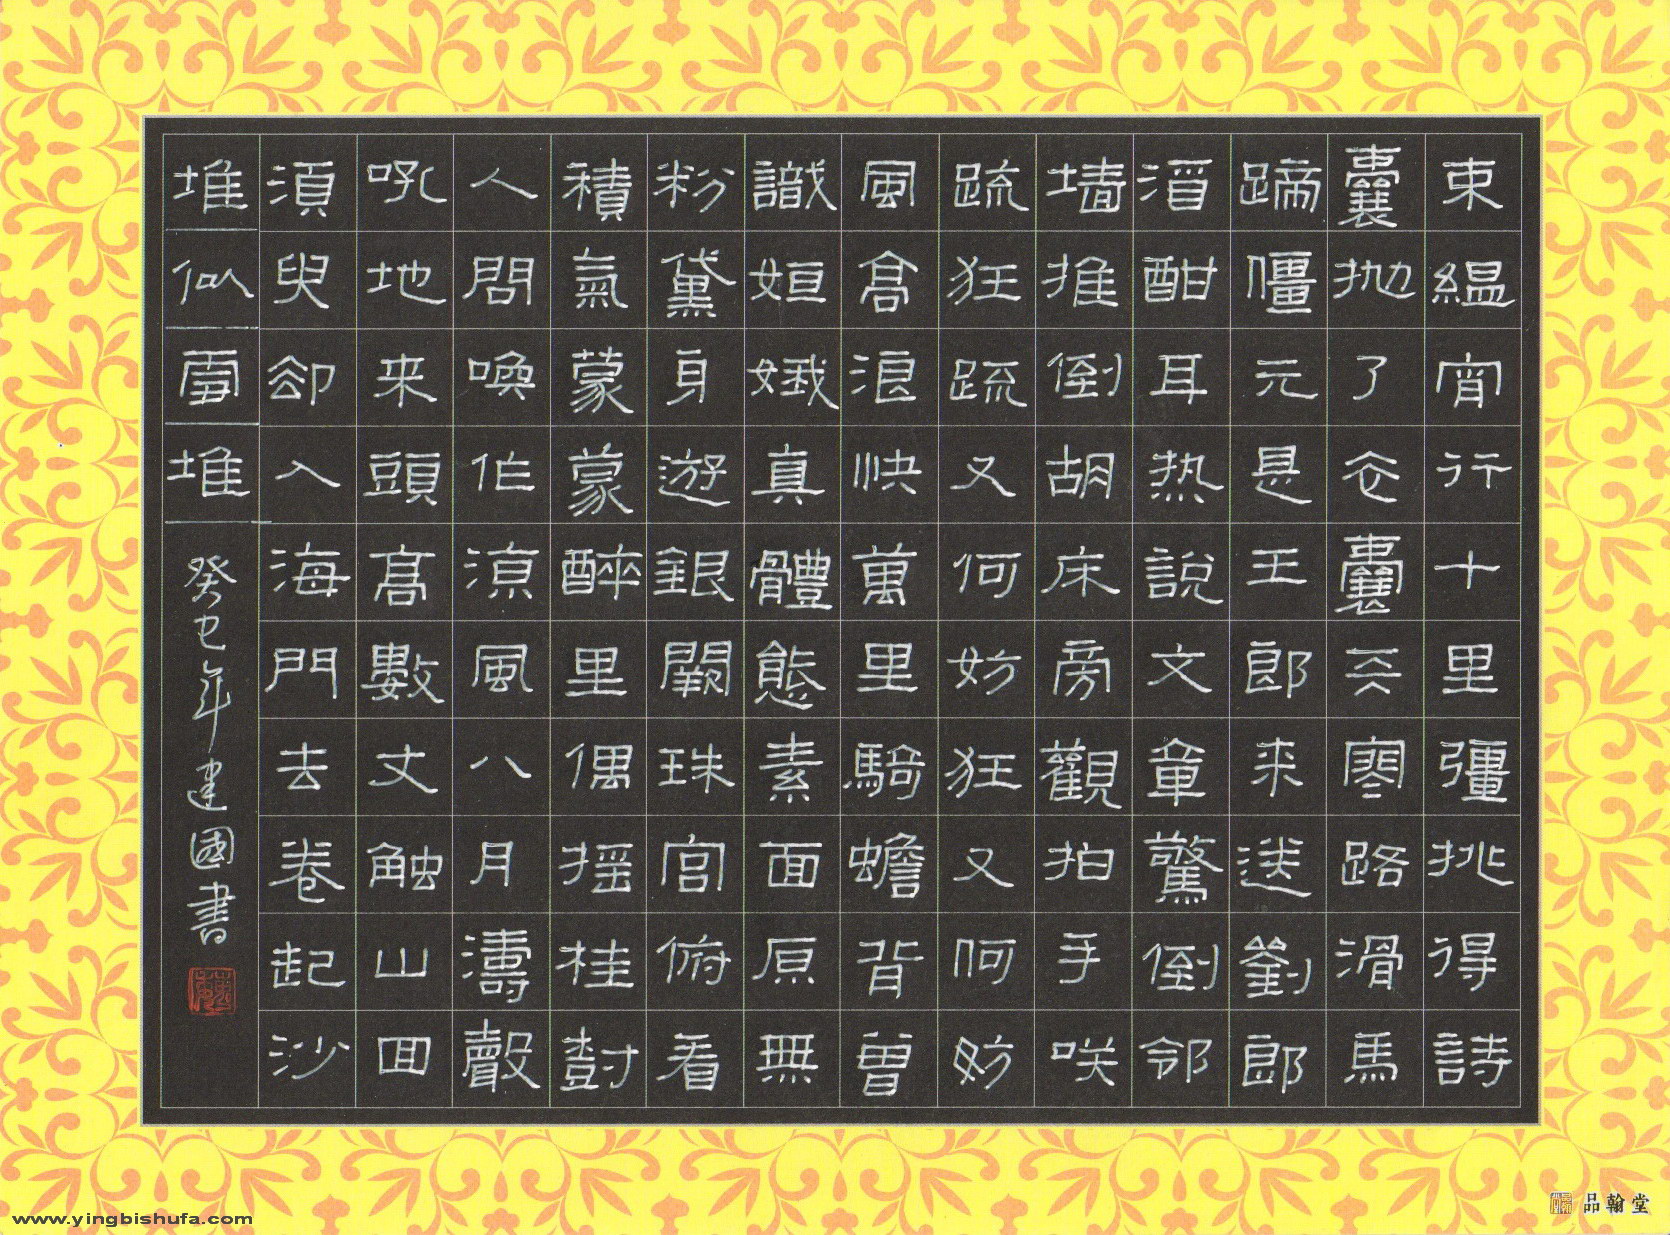 束緼宵行十里彊挑得詩
囊抛了衣囊天寒路滑馬
蹄僵元是王郎来送劉郎
酒酣耳热説文章驚倒邻
墻推倒胡床旁觀拍手咲
疏狂疏又何妨狂又何妨
風高浪快萬里騎蟾背曾
識姮娥真體態素面原無
粉黛身遊銀闕珠宫俯看
積氣蒙蒙醉里偶摇桂樹
人間唤作凉風八月濤聲
吼地来頭高數丈触山回
須臾却入海門去卷起沙
堆似雪堆
癸巳年建國書
www.yingbishufa.com
品翰堂